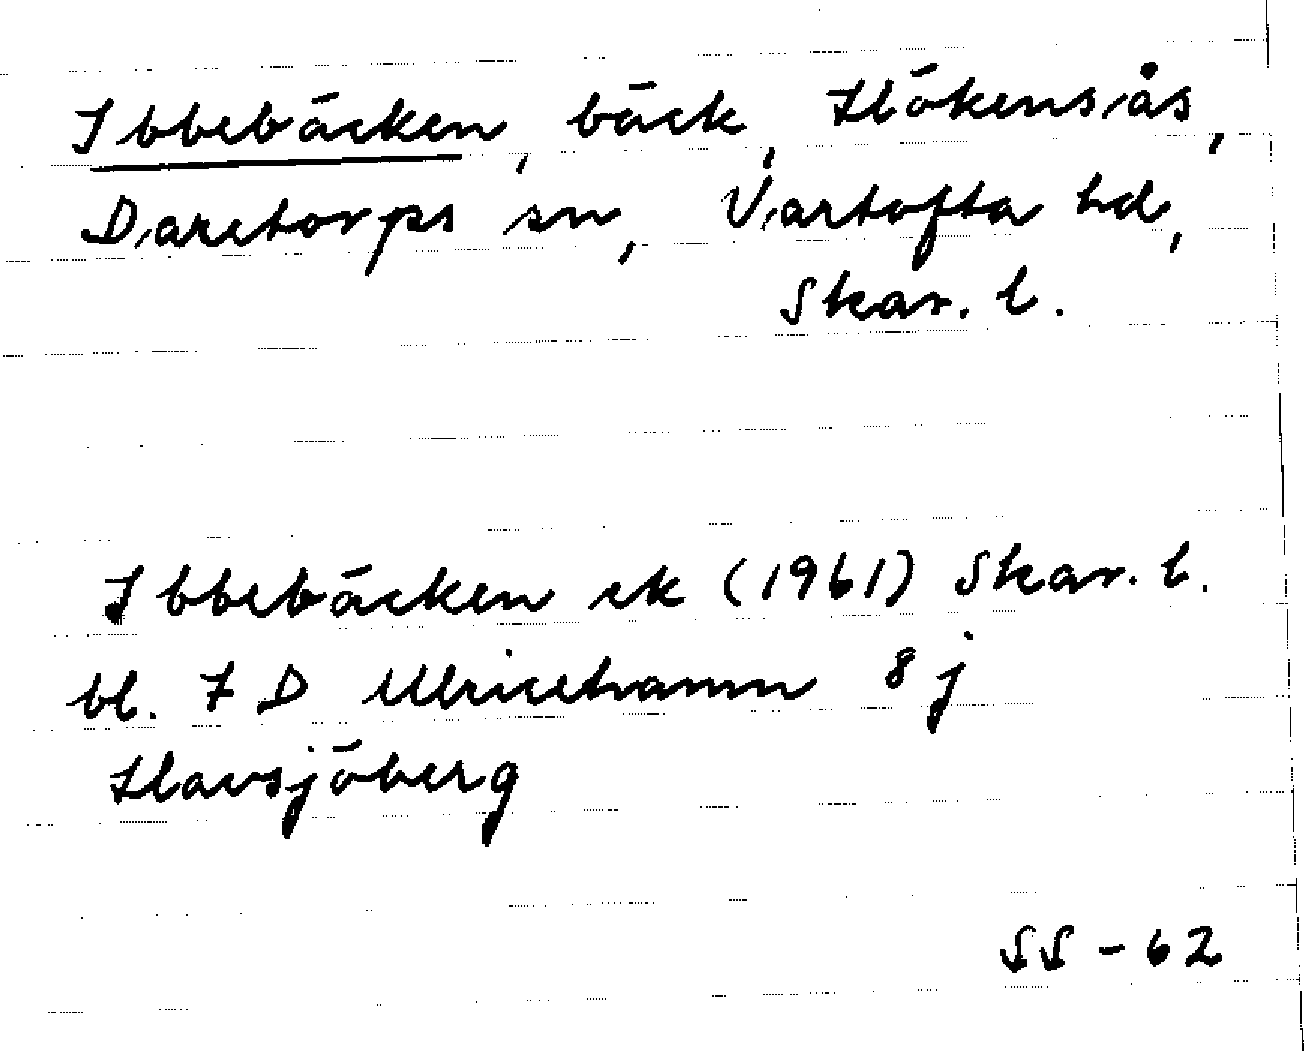 Ibbebäcken, bäck, Hökensås,
Daretorps sn, Vartofta hd,
Skar. l.
Ibbebäcken ek (1961) Skar. l.
bl. 7 D Ulricehamn 8 j
Havsjöberg
SS - 62